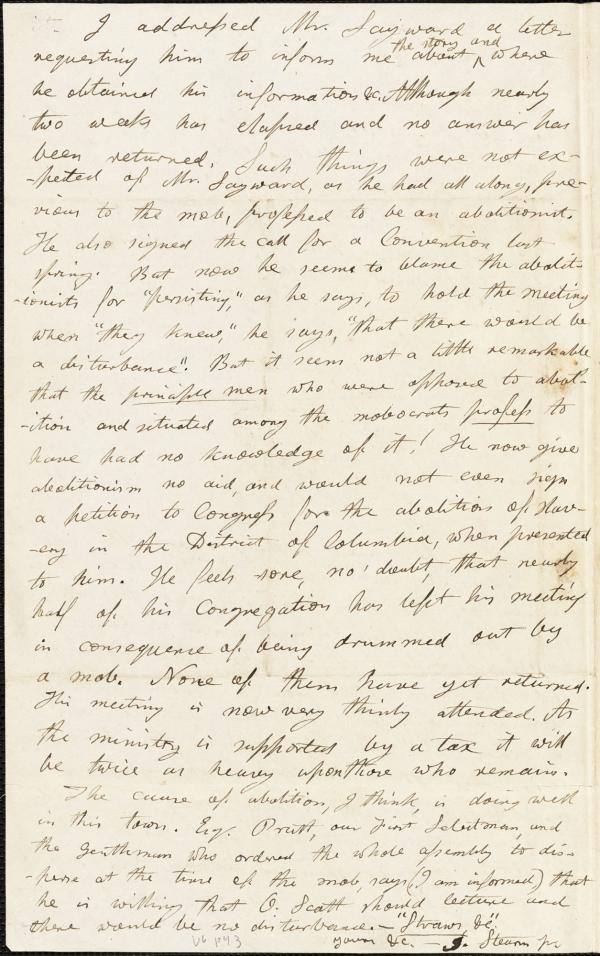 I addressed Mr. Sayward a letter
requesting him to inform me about the story and where
he obtained his information &c. Although nearly
two weeks has elapsed and no answer has
been returned. Such things were not ex-
-pected of Mr. Sayward, as he had all along, pre-
vious to the mob, professed to be an abolitionist.
He also signed the call for a Convention last
spring. But now he seems to blame the abolit-
-ionists for "persisting," as he says, to hold the meeting
when "they knew," he says, "that there would be
a disturbance". But it seems not a little remarkable
that the principle men who were opposed to abol-
-ition and situated among the mobocrats profess to
have had no knowledge of it! He now give
abolitionism no aid, and would not even sign
a petition to Congress for the abolition of Slav-
-ery in the District of Columbia, when presented
to him. He feels sore, no doubt, that nearly
half of his Congregation has left his meeting
in consequence of being drummed out by
a mob. None of them have yet returned.
His meeting is now very thinly attended. As
the ministry is supported by a tax it will
be twice as heavy upon those who remain.
The cause of abolition, I think, is doing well
in this town. Esq. Pratt, our First Selectman, and
the gentleman who ordered the whole assembly to dis-
-perse at the time of the mob, says (I am informed) that
he is willing that O. Scott should lecture and
there would be no disturbance. — "Straws &c".
yours &c. — J. Stearns jr
V6 p43